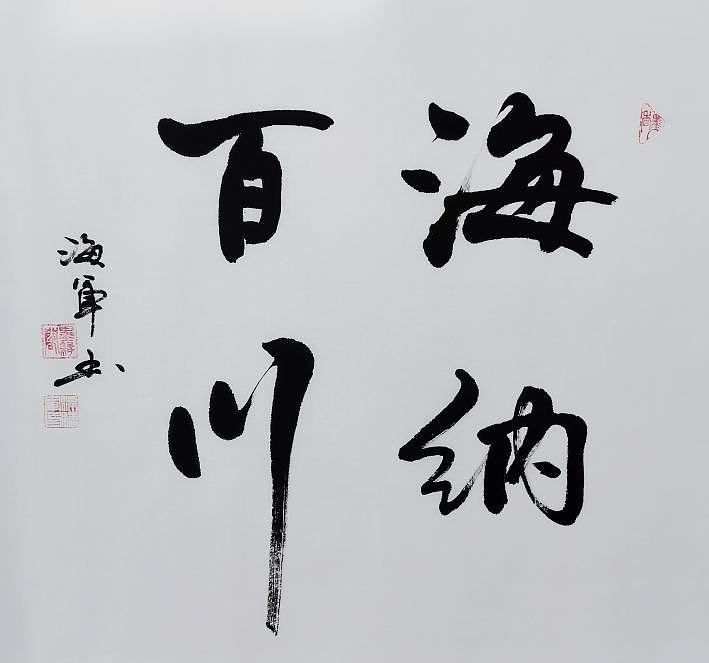 海纳
百川
海军书